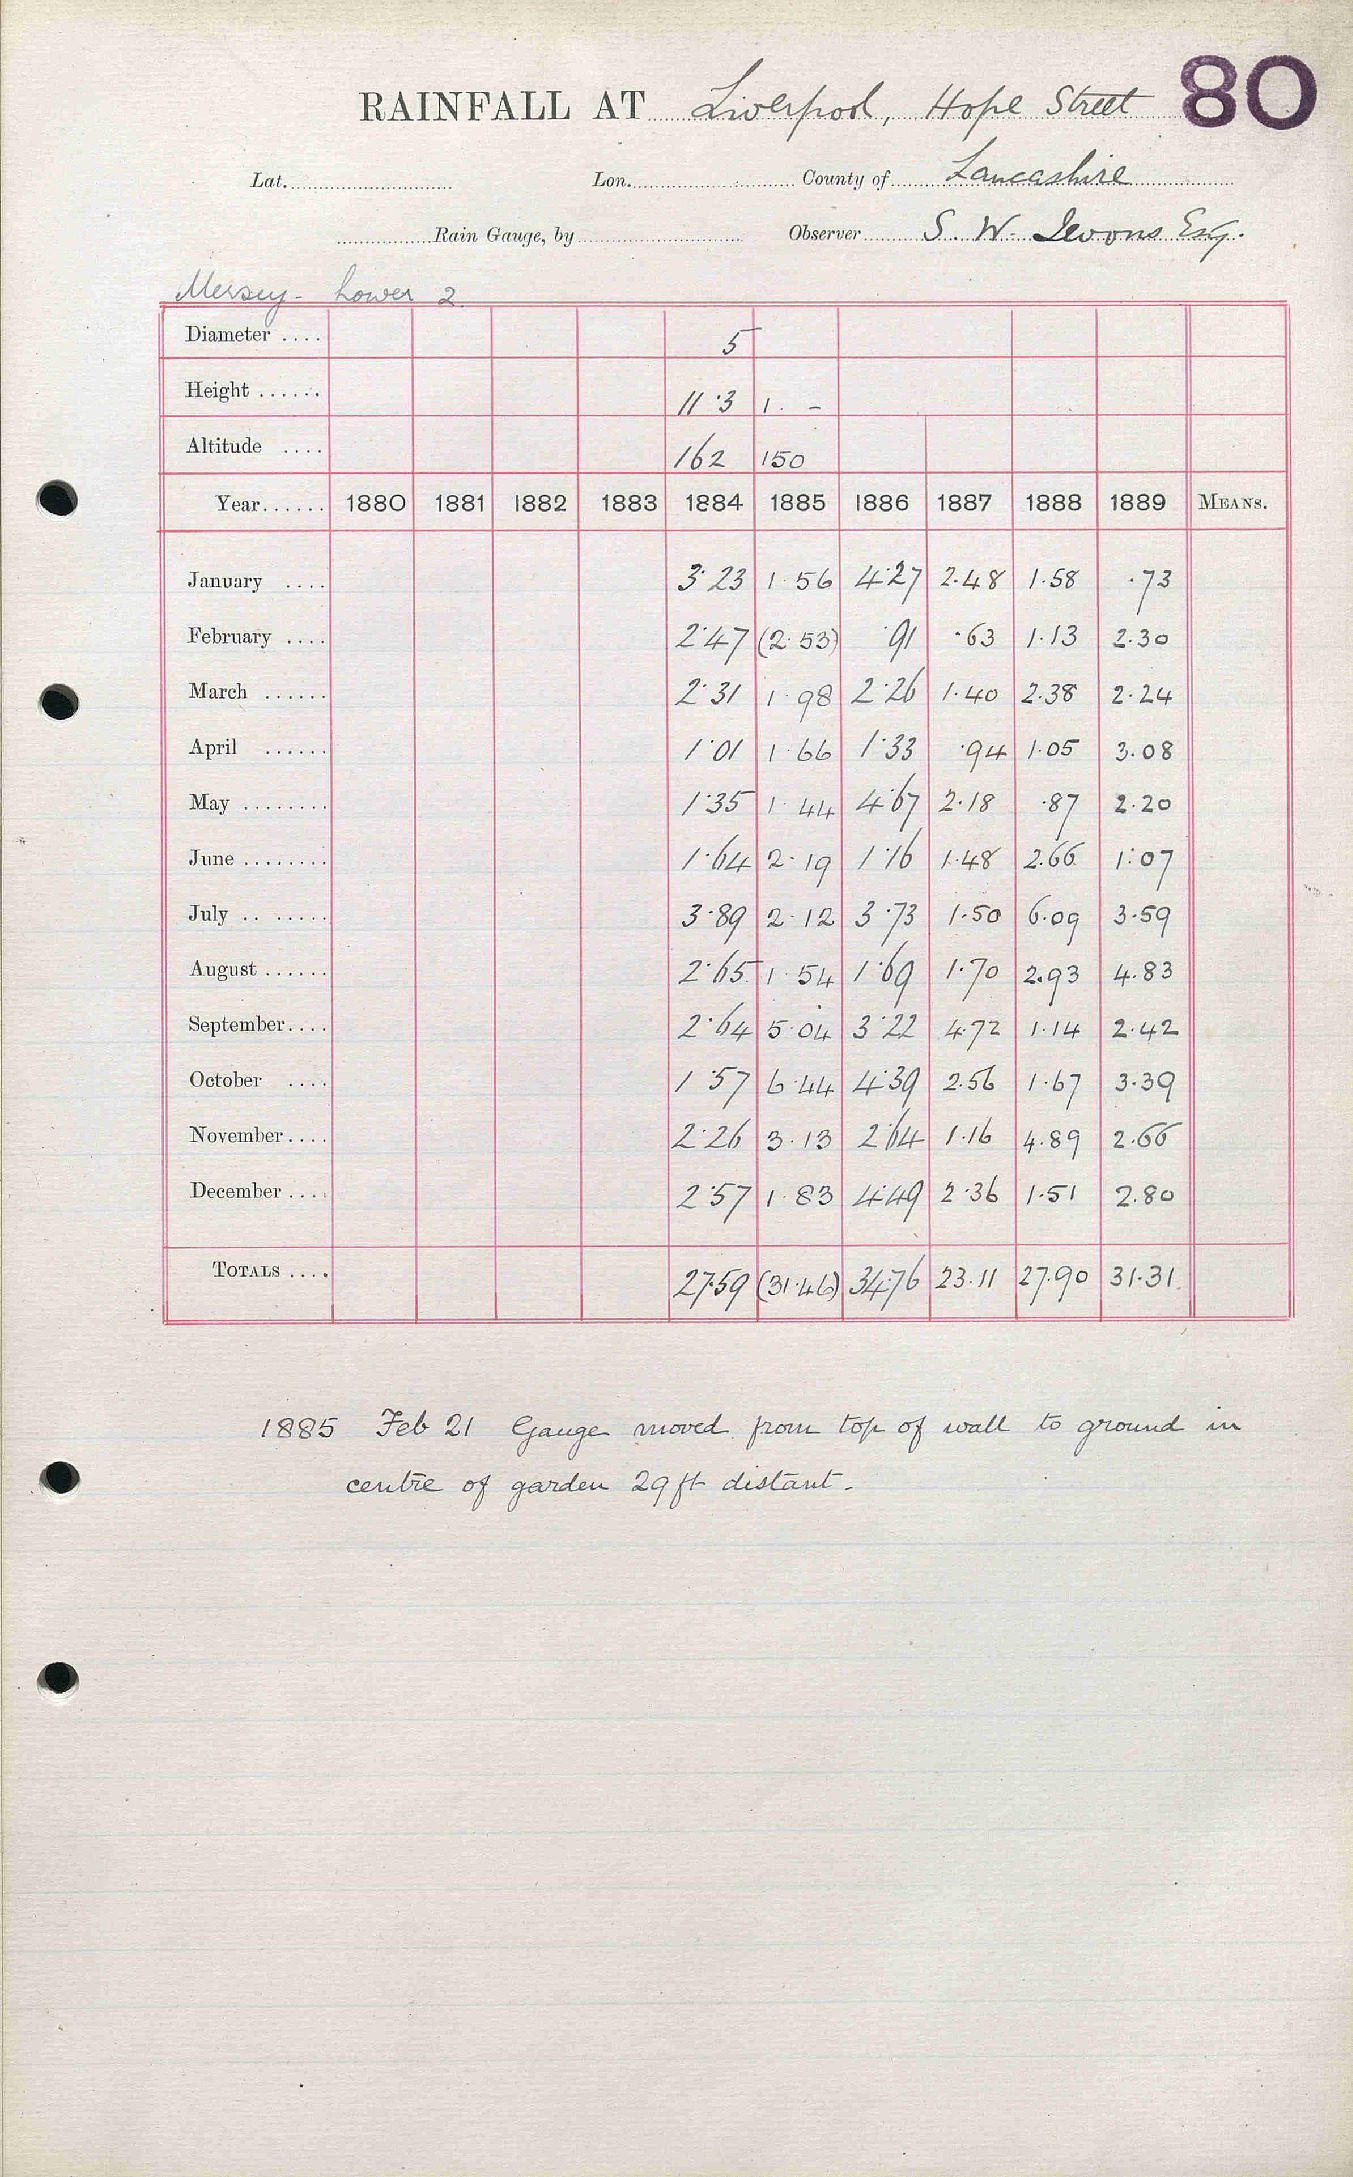 80
RAINFALL AT Liverpool, Hope Street
Lat. Lon. County of Lancashire
Rain Gauge, by Observer S. W. Jevons Esq.
Mersey - Lower 2.
Diameter .... 5
Height ...... 11·3 1. -
Altitude .... 162 150
Year...... 1880 1881 1882 1883 1884 1885 1886 1887 1888 1889 MEANS.
January .... 3·23 1·56 4·27 2·48 1·58 ·73
February .... 2·47 (2·53) ·91 ·63 1·13 2·30
March ...... 2·31 1·98 2·26 1·40 2·38 2·24
April ...... 1·01 1·66 1·33 ·94 1·05 3·08
May ........ 1·35 1·44 4·67 2·18 ·87 2·20
June ........ 1·64 2·19 1·16 1·48 2.66 1·07
July .. ...... 3·89 2·12 3·73 1·50 6·09 3·59
August ...... 2·65 1·54 1·69 1·70 2.93 4·83
September.... 2·64 5·04 3·22 4·72 1·14 2·42
October .... 1·57 6·44 4·39 2·56 1·67 3·39
November.... 2·26 3·13 2·64 1·16 4·89 2·66
December .... 2·57 1·83 4·49 2·36 1·51 2.80
TOTALS .... 27·59 (31·46) 34·76 23·11 27·90 31·31
1885 Feb 21 Gauge moved from top of wall to ground in
centre of garden 29ft distant.